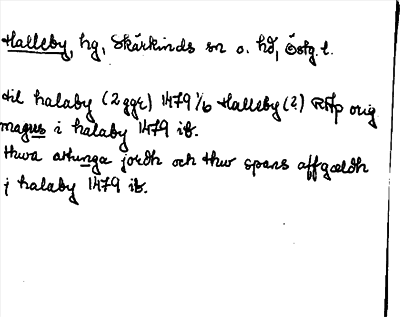 Halleby, hg, Skärkinds sn o. hd, Östg.l.
til halaby (2 ggr) 1479 1/6 Halleby (?) RAp orig
magnus i halaby 1479 ib.
thwa athunga jordh och thw spans affgældh
j halaby 1479 ib.